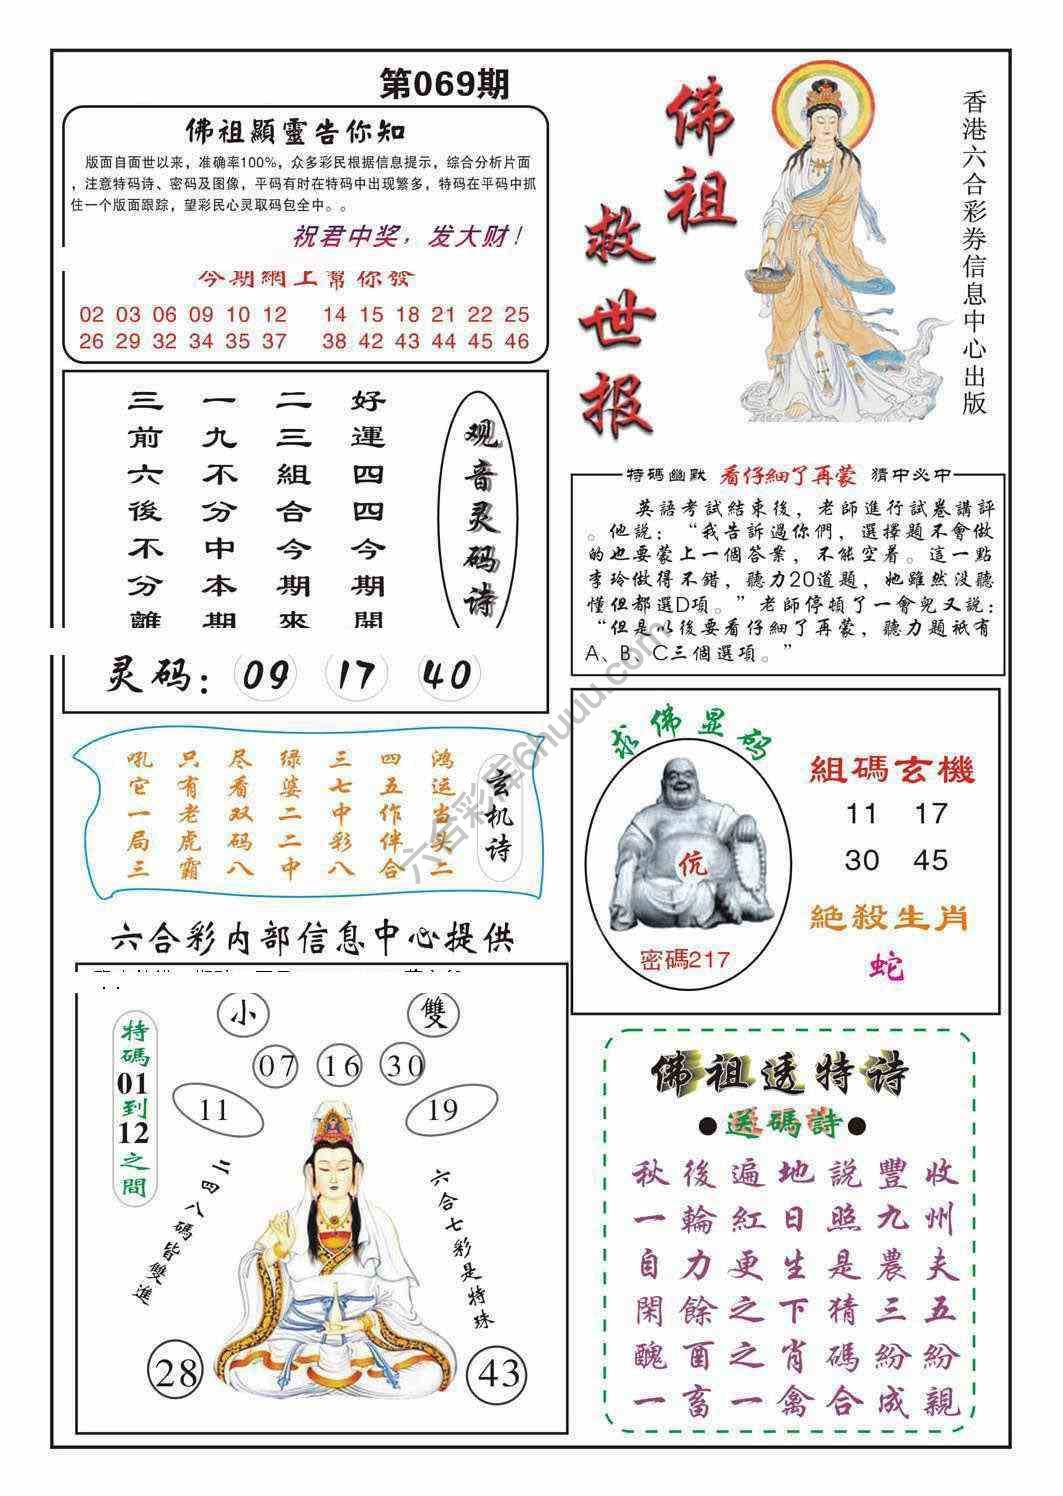 第069期
佛祖顯靈告你知
版面自面世以来，准确率100%，众多彩民根据信息提示，综合分析片面
，注意特码诗、密码及图像，平码有时在特码中出现繁多，特码在平码中抓
住一个版面跟踪，望彩民心灵取码包全中。。
祝君中奖，发大财！
今期網上幫你發
02 03 06 09 10 12 14 15 18 21 22 25
26 29 32 34 35 37 38 42 43 44 45 46
佛祖
救世报
香港六合彩券信息中心出版
观音灵码诗
好運四四今期開
二三組合今期來
一九不分中本期
三前六後不分離
灵码：09 17 40
特碼幽默 看仔細了再蒙 猜中必中
英語考試結束後，老師進行試卷講評
。他説：“我告訴過你們，選擇題不會做
的也要蒙上一個答案，不能空着。這一點
李玲做得不錯，聽力20道題，她雖然没聽
懂但都選D項。”老師停頓了一會兒又説：
“但是以後要看仔細了再蒙，聽力題祇有
A、B、C三個選項。”
玄机诗
鸿运当头二
四五作伴合
三七中彩八
绿婆二二中
尽看双码八
只有老虎霸
吼它一局三
求佛显码
伉
密碼217
組碼玄機
11 17
30 45
絶殺生肖
蛇
六合彩内部信息中心提供
特碼01到12之間
小 雙
07 16 30
11 19
二四八碼皆雙進
六合七彩是特珠
28 43
佛祖透特诗
●送碼詩●
秋後遍地説豐收
一輪紅日照九州
自力更生是農夫
閑餘之下猜三五
醜酉之肖碼紛紛
一畜一禽合成親
六合彩库6huuu.com